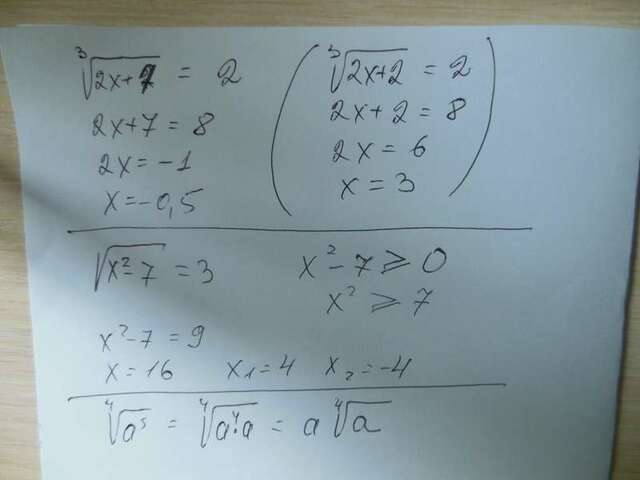 ∛(2x+7) = 2
2x+7 = 8
2x = -1
x = -0,5
(∛(2x+2) = 2
2x+2 = 8
2x = 6
x = 3)
√(x²-7) = 3
x²-7 ⩾ 0
x² ⩾ 7
x²-7 = 9
x = 16 x1 = 4 x2 = -4
∜(a⁵) = ∜(a⁴·a) = a ∜a